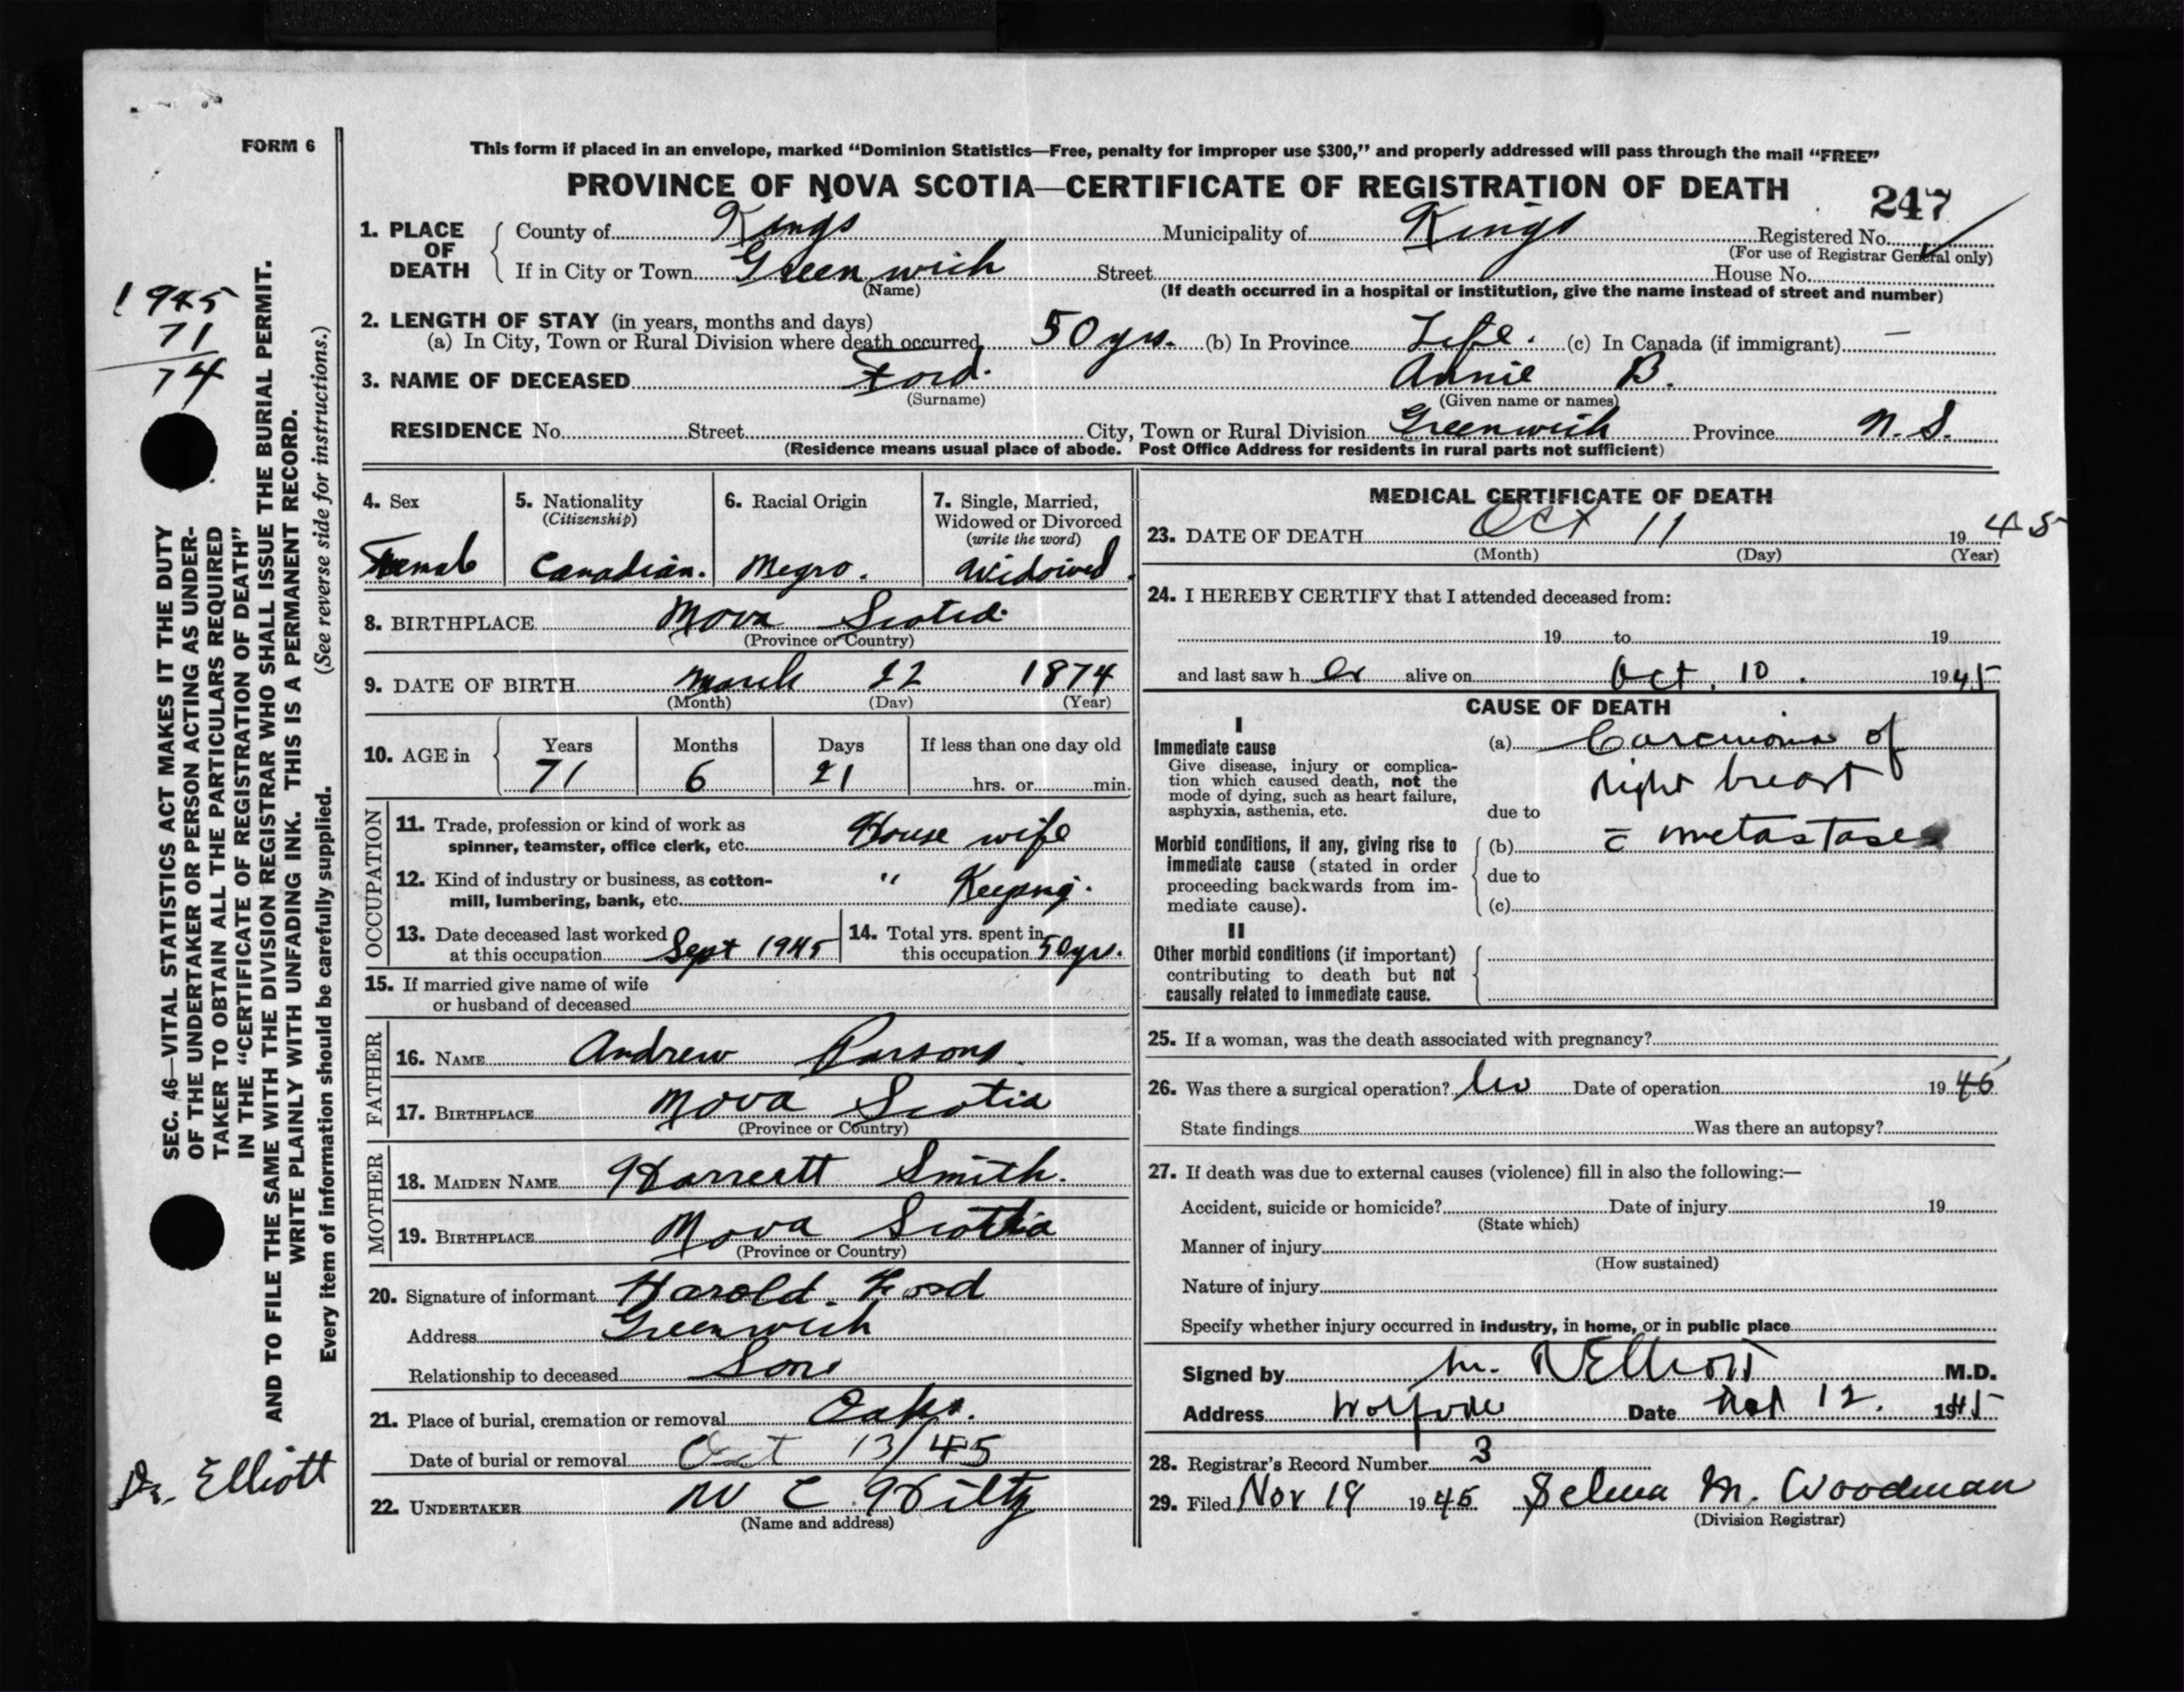 FORM 6
This form if placed in an envelope, marked “Dominion Statistics—Free, penalty for improper use $300,” and properly addressed will pass through the mail “FREE”
PROVINCE OF NOVA SCOTIA—CERTIFICATE OF REGISTRATION OF DEATH 247
1. PLACE OF DEATH
County of Kings Municipality of Kings Registered No.
(For use of Registrar General only)
If in City or Town Greenwich Street House No.
(Name) (If death occurred in a hospital or institution, give the name instead of street and number)
2. LENGTH OF STAY (in years, months and days)
(a) In City, Town or Rural Division where death occurred 50 yrs. (b) In Province Life. (c) In Canada (if immigrant) —
3. NAME OF DECEASED Ford. Annie B.
(Surname) (Given name or names)
RESIDENCE No. Street City, Town or Rural Division Greenwich Province N. S.
(Residence means usual place of abode. Post Office Address for residents in rural parts not sufficient)
4. Sex Female
5. Nationality (Citizenship) Canadian.
6. Racial Origin Negro.
7. Single, Married, Widowed or Divorced (write the word) Widowed.
8. BIRTHPLACE Nova Scotia
(Province or Country)
9. DATE OF BIRTH March 1874
(Month) (Day) (Year)
10. AGE in Years 71 Months 6 Days 21 If less than one day old hrs. or min.
OCCUPATION
11. Trade, profession or kind of work as
spinner, teamster, office clerk, etc. House wife
12. Kind of industry or business, as cotton-
mill, lumbering, bank, etc. " Keeping.
13. Date deceased last worked
at this occupation Sept 1945
14. Total yrs. spent in
this occupation 50 yrs.
15. If married give name of wife
or husband of deceased
FATHER
16. NAME Andrew Parsons
17. BIRTHPLACE Nova Scotia
(Province or Country)
MOTHER
18. MAIDEN NAME Harreett Smith.
19. BIRTHPLACE Nova Scotia
(Province or Country)
20. Signature of informant Harold. Ford
Address Greenwich
Relationship to deceased Son
21. Place of burial, cremation or removal
Date of burial or removal Oct 13/45
22. UNDERTAKER W C Hiltz
(Name and address)
MEDICAL CERTIFICATE OF DEATH
23. DATE OF DEATH Oct 11 1945
(Month) (Day) (Year)
24. I HEREBY CERTIFY that I attended deceased from:
19 to 19
and last saw h er alive on Oct. 10. 1945
CAUSE OF DEATH
I
Immediate cause
Give disease, injury or complica-
tion which caused death, not the
mode of dying, such as heart failure,
asphyxia, asthenia, etc.
(a) Carcinoma of
right breast
due to
Morbid conditions, if any, giving rise to
immediate cause (stated in order
proceeding backwards from im-
mediate cause).
(b) c̄ metastases
due to
(c)
II
Other morbid conditions (if important)
contributing to death but not
causally related to immediate cause.
25. If a woman, was the death associated with pregnancy?
26. Was there a surgical operation? No Date of operation 19
State findings Was there an autopsy?
27. If death was due to external causes (violence) fill in also the following:—
Accident, suicide or homicide? Date of injury 19
(State which)
Manner of injury
(How sustained)
Nature of injury
Specify whether injury occurred in industry, in home, or in public place
Signed by M. R Elliott M.D.
Address Wolfville Date 12. 1945
28. Registrar's Record Number 3
29. Filed Nov 19 1945 Selma M. Woodman
(Division Registrar)
1945
71
74
SEC. 46—VITAL STATISTICS ACT MAKES IT THE DUTY
OF THE UNDERTAKER OR PERSON ACTING AS UNDER-
TAKER TO OBTAIN ALL THE PARTICULARS REQUIRED
IN THE “CERTIFICATE OF REGISTRATION OF DEATH”
AND TO FILE THE SAME WITH THE DIVISION REGISTRAR WHO SHALL ISSUE THE BURIAL PERMIT.
WRITE PLAINLY WITH UNFADING INK. THIS IS A PERMANENT RECORD.
Every item of information should be carefully supplied. (See reverse side for instructions.)
Dr. Elliott